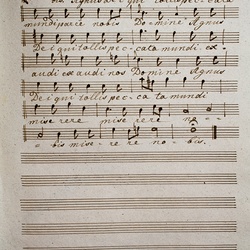 bis Agnus De i qui tollis pec cata
mundi parce nobis Do mine Agnus
De i qui tollis pec cata mundi ex
audi ex audi nos Domine Agnus
De i qui tollis pec ca ta mundi
mise rere mise re re no
bis mise re re no bis.